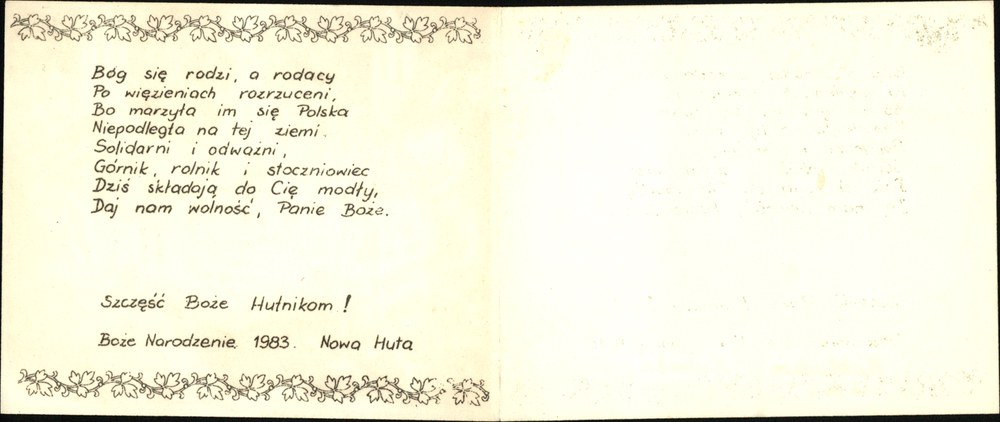 Bóg się rodzi, a rodacy
Po więzieniach rozrzuceni,
Bo marzyła im się Polska
Niepodległa na tej ziemi.
Solidarni i odważni,
Górnik, rolnik i stoczniowiec
Dziś składają do Cię modły,
Daj nam wolność, Panie Boże.
Szczęść Boże Hutnikom!
Boże Narodzenie 1983. Nowa Huta